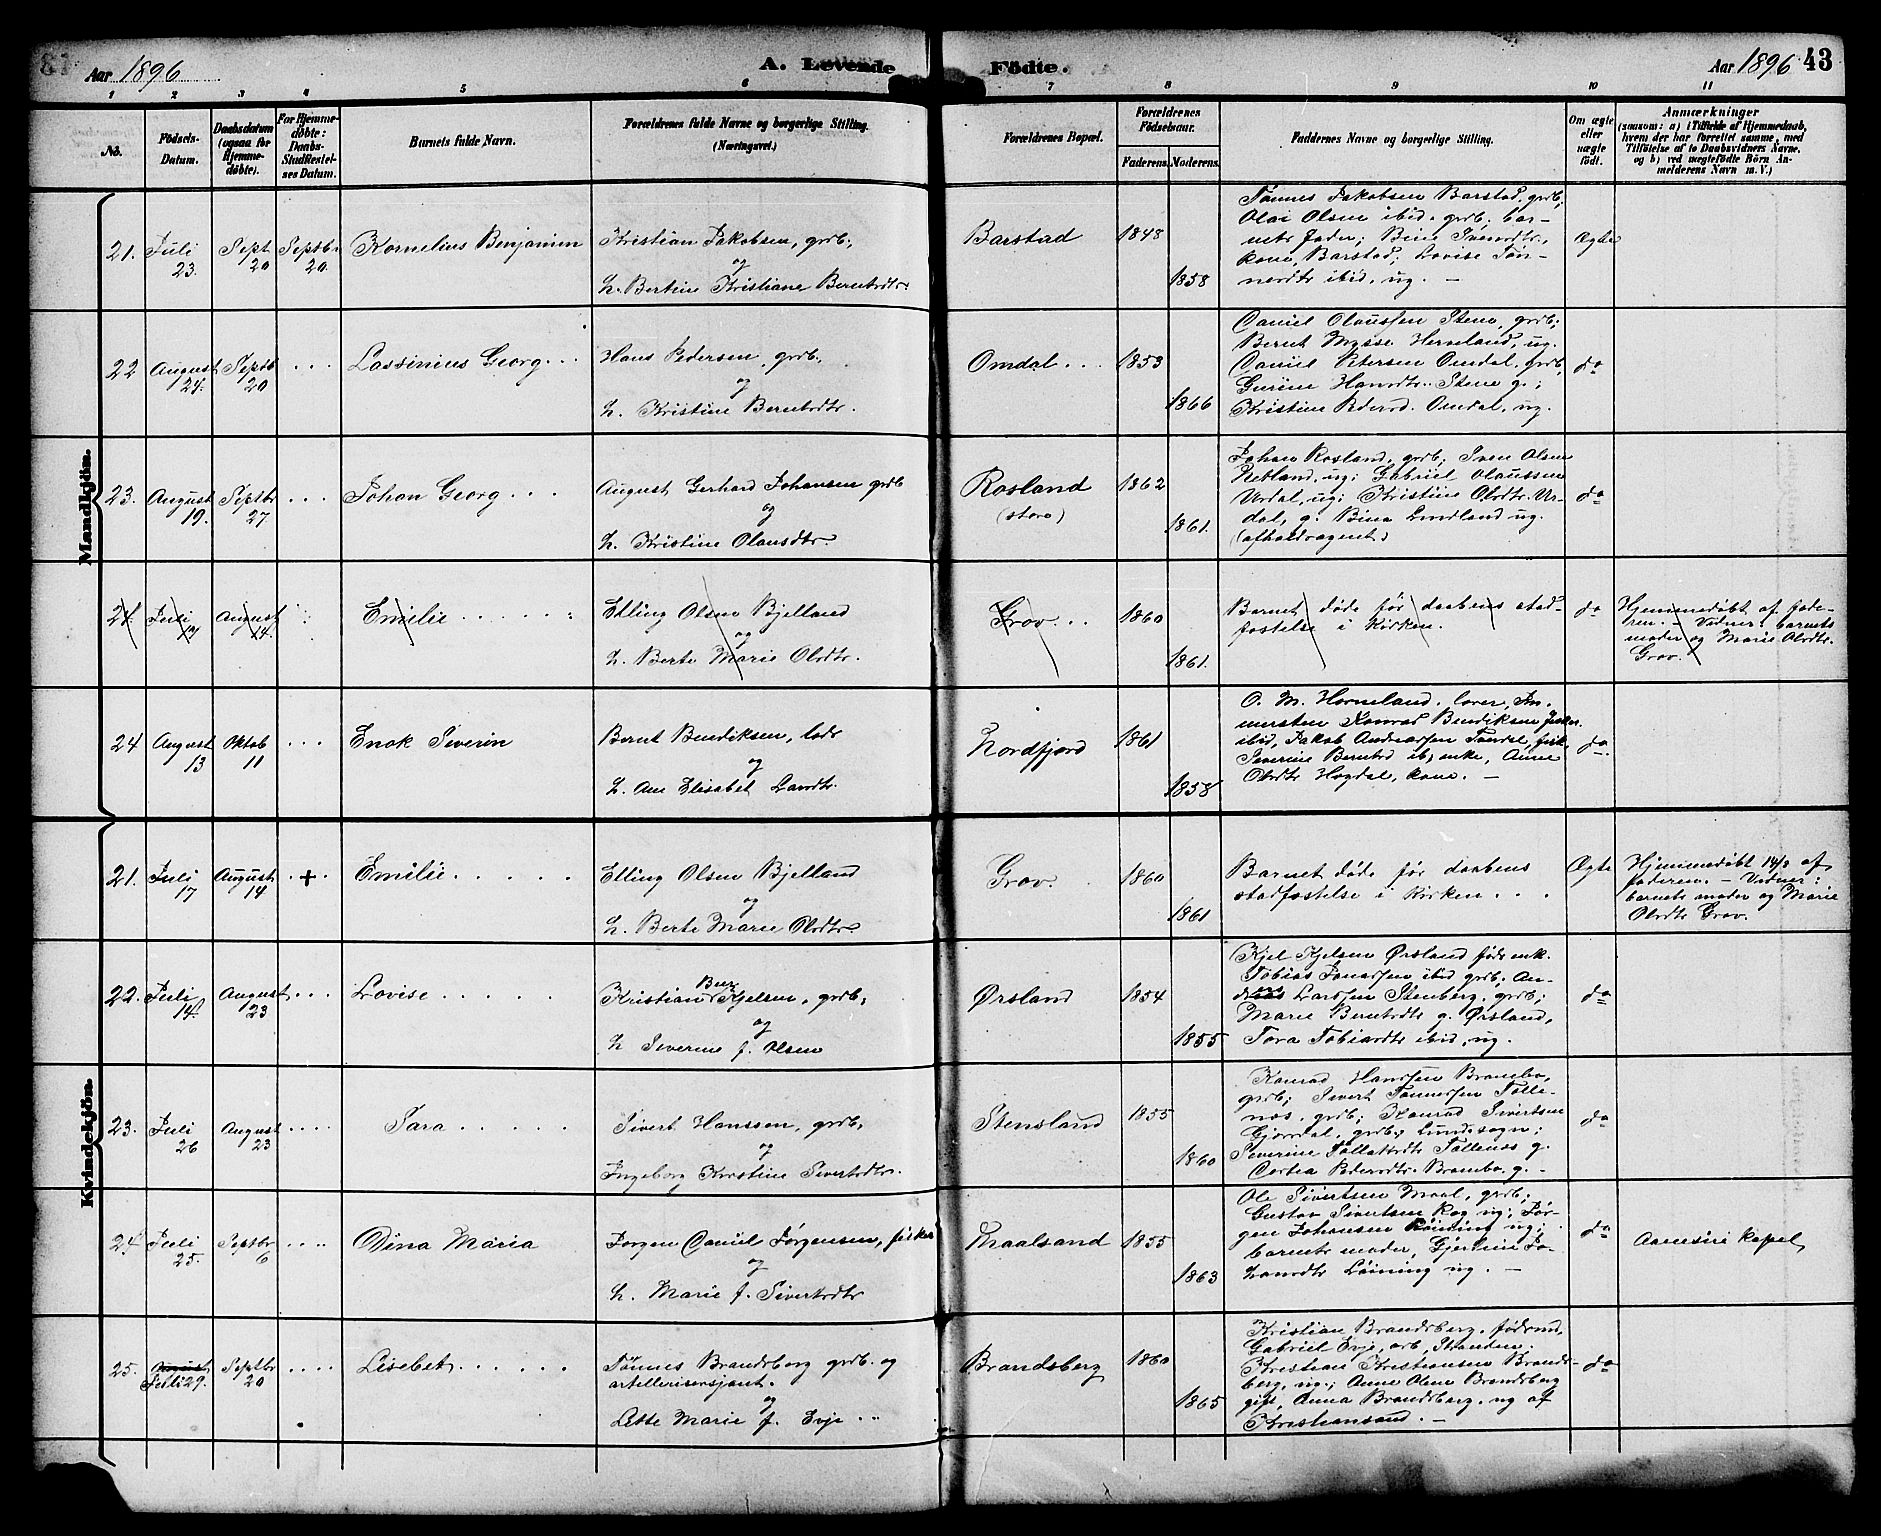 Aar 1896
A. Levende
Födte.
Aar 1896
43
1 2 3 4 5 6 7 8 9 10 11
No.
Födsels-
Datum.
Daabsdatum
(ogsaa for
Hjemme-
døbte).
For Hjemme-
døbte:
Daabs-
Stadfæstel-
ses Datum.
Barnets fulde Navn.
Forældrenes fulde Navne og borgerlige Stilling.
(Næringsvei.)
Forældrenes Bopæl.
Forældrenes
Födselsaar.
Faderens.
Moderens.
Faddernes Navne og borgerlige Stilling.
Om ægte
eller
uægte
födt.
Anmærkninger
(saasom: a) i Tilfælde af Hjemmedaab,
hvem der har forrettet samme, med
Tilföielse af to Daabsvidners Navne,
og b) ved uægtefödte Börn An-
melderens Navn m. V.)
Mandkjön.
21.
Juli
23.
Sept
20
Septbr
20.
Kornelius Benjamin
Kristian Jakobsen, grdb.
og
h. Bertine Kristiane Berntsdtr.
Barstad
1848
1858
Tønnes Jakobsen Barstad, grdb,
Olai Olsen ibid. grdb. bar-
nets fader; Bine Svendtr.
kone, Barstad; Lovise Tøn-
nesdtr ibid, ug. –
Ægte
22
August
24.
Septb
20
Lassinius Georg
Hans Pedersen, grdb.
og
h. Kristine Berntsdtr.
Omdal
1853
1866
Daniel Olaussen Stene, grdb;
Bernt Mysse Herneland, ug.
Daniel Petersen Omdal, grdb,
Gurine Hansdtr. Stene g.;
Kristine Pedersd. Omdal, ug.
do
23.
August
19.
Septbr
27
Johan Georg
August Gerhard Johansen grdb
og
h. Kristine Olausdtr.
Rosland
(store)
1862
1861.
Johan Rosland, grdb; Sven Olsen
Hetland, ug; Gabriel Olaussen
Urdal, ug; Kristine Olsdtr. Ur-
dal, g. Bina Lindland ug.
do
24.
Juli
August
14.
Emilie
Elling Olsen Bjelland
og
h. Berte Marie Olsdtr.
Grov
1860
1861.
Barnet døde før daabens stad-
fæstelse i Kirken.
do
Hjemmedøbt af fade-
ren. – Vidner: barnets
moder og Marie Olsdtr.
Grov.
24
August
13
Oktob
11
Enok Severin
Bernt Bendiksen, lods
og
h. Ane Elisabet Larsdtr.
Nordfjord
1861
1858
O. M. Horneland,
Konrad Bendiksen fisker.
ibid, Jakob Andreassen
Severine Berntsd ib; enke, Anne
Olsdtr Hogdal, kone. –
do.
Kvindekjön.
21.
Juli
17
August
14
+
Emilie
Elling Olsen Bjelland
og
h. Berte Marie Olsdtr
Grov.
1860
1861
Barnet døde før daabens
stadfæstelse i Kirken
Ægte
Hjemmedøbt 14/8 af
faderen. – Vidner:
barnets moder og Marie
Olsdtr Grov.
22.
Juli
14.
August
23
Lovise
Kristian Kjelsen, grdb,
og
h Severine f. Olsen
Ørsland
1854
1855
Kjel Kjelsen Ørsland føds.enk.
Tobias Jonassen ibid grdb; An-
dreas Larssen Stenberg, grdb;
Marie Berntsdtr g. Ørsland,
Tora Tobiasdtr ibid, ug.
do
23.
Juli
26
August
23
Sara
Sivert Hanssen, grdb,
og
Ingeborg Kristine Sivertsdtr.
Stensland
1855
1860
Konrad Hanssen Brambo,
grdb; Sivert Tønnessen Tolle-
nes, grdb; Konrad Sivertsen
Gjørdal, grdb, Lundesogn;
Severine Tollaksdtr Tollenes g.
Cortea Pedersdtr. Brambo, g. –
do
24
Juli
25.
Septbr
6
Dina Maria
Jørgen Daniel Jørgensen, fisker
og
h. Marie f. Sivertsdtr
Maalsand
1855
1863
Ole Sivertsen Maal, grdb;
Gustav Sivertsen Rog ug; Jør-
gen Johansen Løining ug;
barnets moder, Gjertine Jo-
hansdtr Løining ug. –
do
Aanesire kapel
25.
Juli 29.
Septbr
20
Lisebet
Tønnes Brandsberg grdb. og
artillerisersjant.
og
Lette Marie f. Evje
Brandsberg
1860
1865
Kristian Brandsberg, fødsmd,
Gabriel Evje, arb, Stranden;
Kristian Kristiansen Brands-
berg, ug.; Anne Olene Brandsberg
gift, Anna Brandsberg, ug af
Kristiansand. –
do